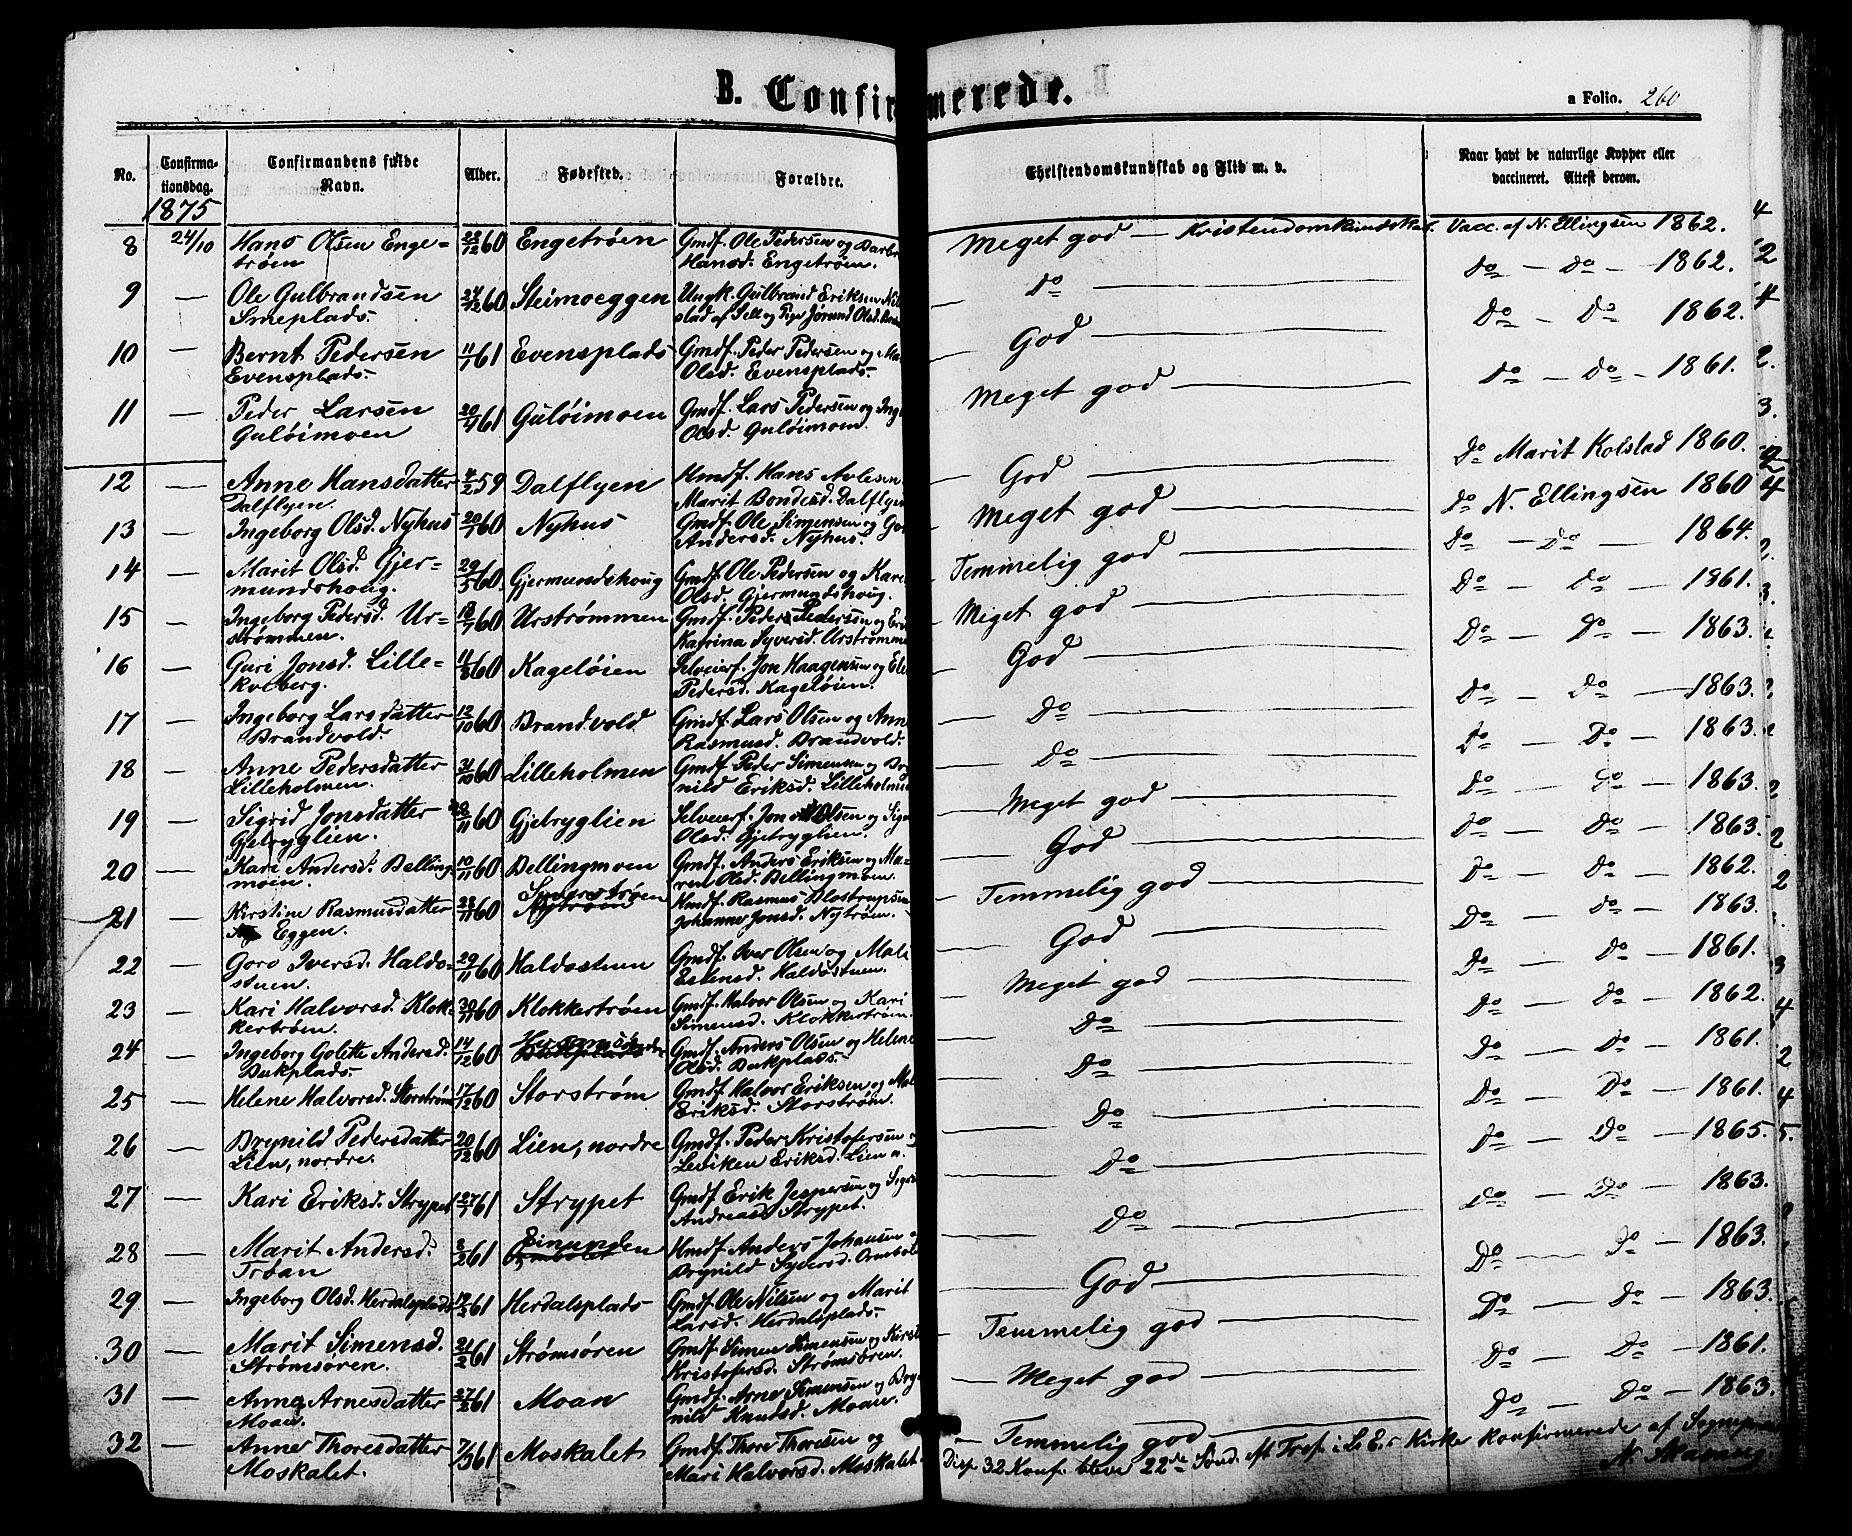 B. Confirmerede.
a Folio. 260
No. Confirmationsdag. Confirmandens fulde Navn. Alder. Fødested. Forældre. Christendomskundskab og Flid m. v. Naar havt de naturlige Kopper eller vaccineret. Attest derom.
1875
8 24/10 Hans Olsen Enge- 23/12 60 Engetrøen Gmdf. Ole Pedersen og Meget god — Kristendomkundskab. Vacc. af N. Ellingsen 1862. 4
trøen Hansd. Engetrøen.
9 — Ole Gulbrandsen 24/12 60 Steimoeggen Ungk. Gulbrand Eriksen — Do Do — Do — 1862. 2
Smeplads. plad af Sell og Pige Jørund Olsd.
10 — Bernt Pedersen 11/1 61 Evensplads Gmdf. Peder Pedersen og — God Do — Do 1862. 4
Evensplads. Olsd. Evensplads.
11 — Peder Larsen 61 Guløimoen Gmdf. Lars Pedersen og — Meget god — Do — Do — 1861. 2.
Guløimoen Olsd. Guløimoen. 3.
12 — Anne Hansdatter 4/2 59 Dalflyen Hmdf. Hans Avlesen — God — Do Marit Kolstad 1860. 2
Dalflyen. Marit Bondesd. Dalflyen
13 — Ingeborg Olsd. Nyhus 20/1 60 Nyhus Gmdf. Ole Simensen og — Meget god — Do N. Ellingsen 1860 4
Andersd. Nyhus.
14 — Marit Olsd. Gjer- 29/5 60 Gjermundshoug Gmdf. Ole Pedersen og Kari — Temmelig god — Do — Do — 1864. 2.
mundshoug. Olsd. Gjermundshoug.
15 — Ingeborg Pedersd. Ur- 18/7 60 Urstrømmen Gmdf. Peder Pedersen og — Meget god — Do — Do — 1861. 3.
strømmen. Katrina Syversd. Urstrømmen
16 — Guri Jonsd. Lille- 11/8 60 Kageløien Selveierf. Jon Haagensen og — God — Do — Do — 1863.
Kveberg. Pedersd. Kageløien.
17 — Ingeborg Larsdatter 12/10 60 Brandvold Gmdf. Lars Olsen og Anne — Do — Do — Do — 1863. 2
Brandvold. Rasmusd. Brandvold.
18 — Anne Pedersdatter 31/10 60 Lilleholmen Gmdf. Peder Simensen og — Do — Do — Do — 1863.
Lilleholmen. nild Eriksd. Lilleholmen
19 — Sigrid Jonsdatter 60 Gjetryglien Selveierf. Jon Olsen og — Meget god — Do — Do — 1863. 2
Gjetryglien. Olsd. Gjetryglien.
20 — Kari Andersd. Belling- 10/11 60 Bellingmoen Gmdf. Anders Eriksen og Ma- — God — Do — Do — 1863. 2
moen. ren Olsd. Bellingmoen.
21 — Kirstine Rasmusdatter 23/11 60 Nytrøen Hmdf. Rasmus Blostrupsen — Temmelig god — Do — Do — 1862. 2
Eggen. Johanne Jonsd. Nytrøen.
22 — Goro Iversd. Haldo- 29/11 60 Haldostuen Gmdf. Iver Olsen og Mali — God — Do — Do — 1863.
stuen. Estensd. Haldostuen.
23 — Kari Halvorsd. Klok- 30/11 60 Klokkertrøen Gmdf. Halvor Olsen og Kari — Meget god — Do — Do — 1861. 3
kertrøen. Simensd. Klokkertrøen.
24 — Ingeborg Golette Andersd. 14/12 60 Gmdf. Anders Olsen og Helene — Do — Do — Do — 1862. 4
Bukplads. Olsd. Bukplads.
25 — Helene Halvorsd. Storstrøm 17/12 60 Storstrøm Gmdf. Halvor Eriksen og — Do — Do — Do — 1861. 2
Eriksd. Storstrøm.
26 — Brynild Pedersdatter 20/12 60 Lien, nordre Gmdf. Peder Kristofersen og — Do — Do — Do — 1861. 4
Lien, nordre. Eriksd. Lien n.
27 — Kari Eriksd. Strypet 27/1 61 Strypet Gmdf. Erik Jespersen og — Do — Do — Do — 1865. 5.
Andreasd. Strypet.
28 — Marit Andersd. 2/2 61 Einunden Hmdf. Anders Johansen og — Do — Do — Do — 1863.
Trøan Brynild Syversd.
29 — Ingeborg Olsd. Herdalsplads 61 Herdalsplads Gmdf. Ole Nilsen og Marit — God — Do — Do — 1863. 2
Larsd. Herdalsplads.
30 — Marit Simensd. 21/2 61 Strømsøren Gmdf. Simen Simensen og — Temmelig god — Do — Do — 1863.
Strømsøren. Kristofersd. Strømsøren.
31 — Anne Arnesdatter 27/2 61 Moan Gmdf. Arne Simensen og Bry- — Meget god — Do — Do — 1861.
Moan. nild Knudsd. Moan.
32 — Anne Thoresdatter 7/3 61 Moskalet Gmdf. Thore Thoresen og — Temmelig god — Do — Do — 1863.
Moskalet. Mari Halvorsd. Moskalet.
32 Konf. bleve 22de Sönd. eft Tref. i Kirke konfirmerede af